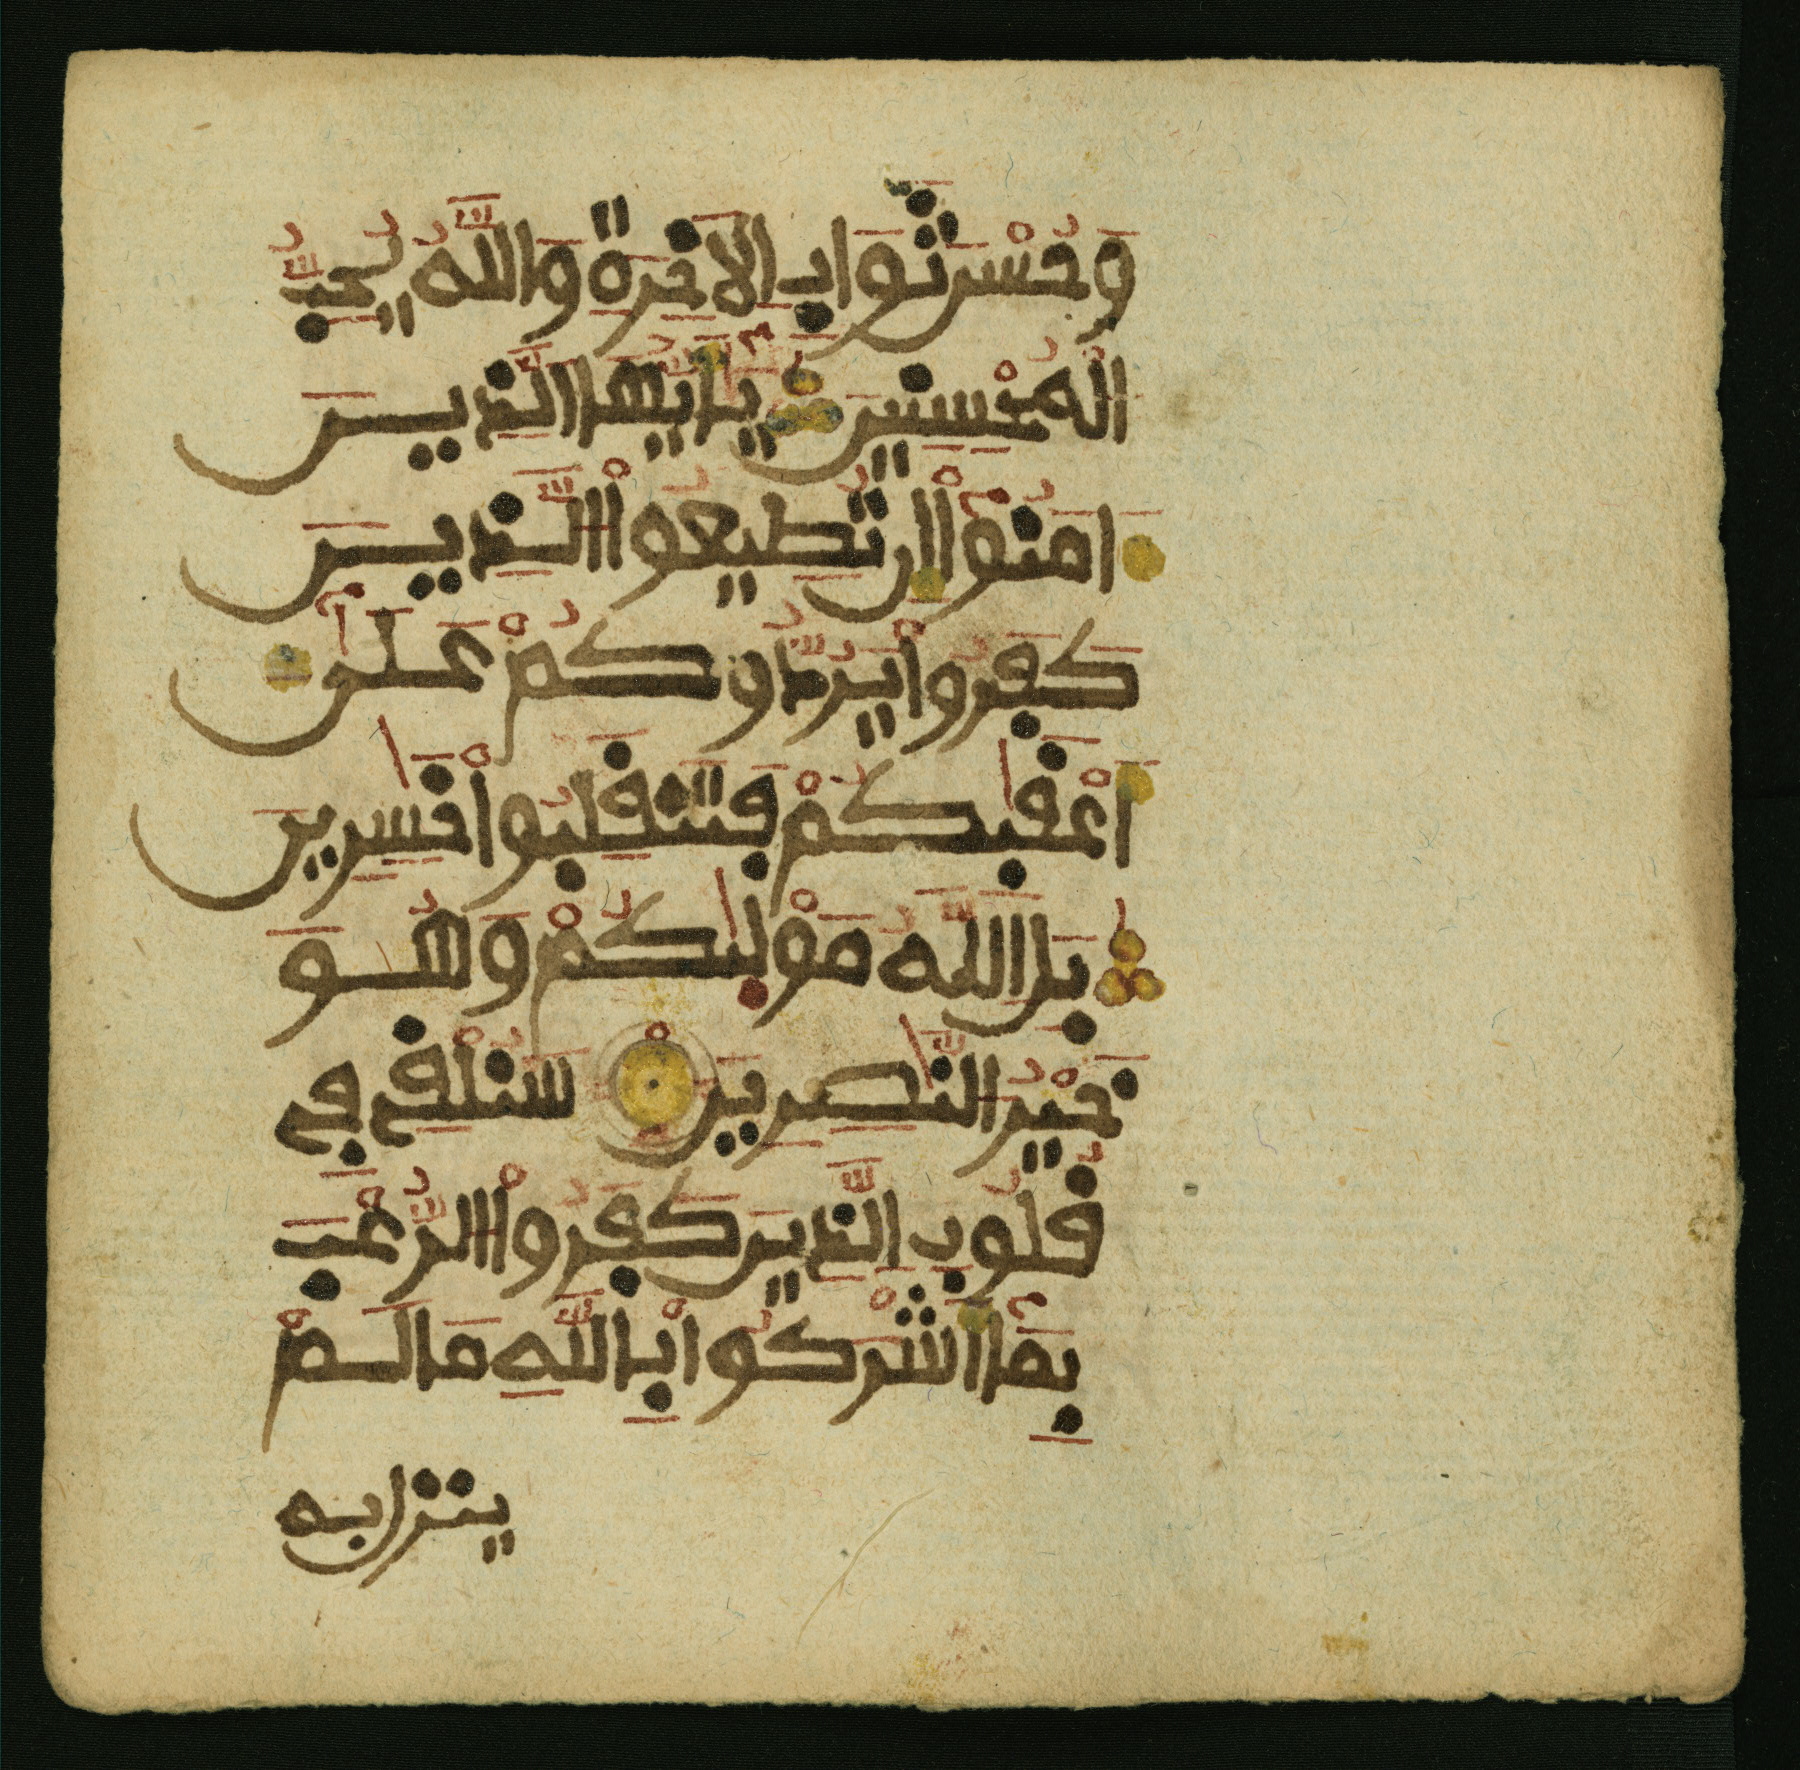 وَحُسْنَ ثَوَابِ الَاخِرَةِ وَاللَّهُ يُحِبُّ
الْمُحْسِنِينَ يَٰأَيُّهَا الَّذِينَ
ءَامَنُوٓاْ إِن تُطِيعُواْ الَّذِينَ
كَفَرُواْ يَرُدُّوكُمْ عَلَىٰٓ
أَعْقَٰبِكُمْ فَتَنقَلِبُواْ خَٰسِرِينَ
بَلِ اللَّهُ مَوْلَىٰكُمْ وَهُوَ
خَيْرُ النَّٰصِرِينَ سَنُلْقِي فِي
قُلُوبِ الَّذِينَ كَفَرُواْ الرُّعْبَ
بِمَآ أَشْرَكُواْ بِاللَّهِ مَا لَمْ
ينزل به